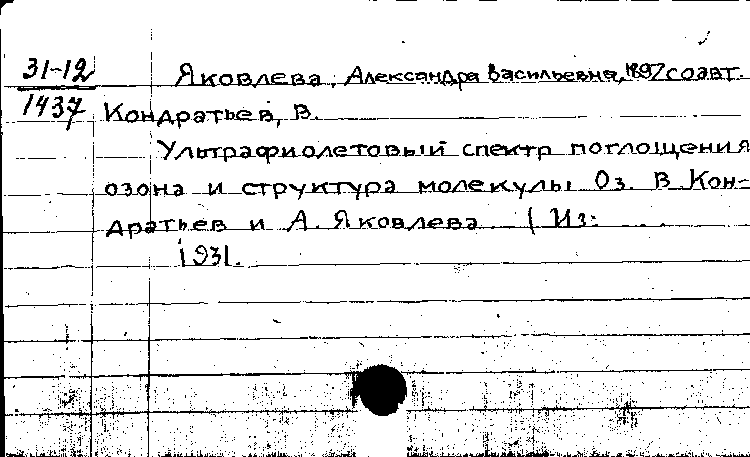 31-12 Яковлева, Александра Васильевна, 1897 соавт.
1437 Кондратьев, В.
Ультрафиолетовый спектр поглощения
озона и структура молекулы O₃. В. Кон-
дратьев и А. Яковлева (Из: ....
1931.